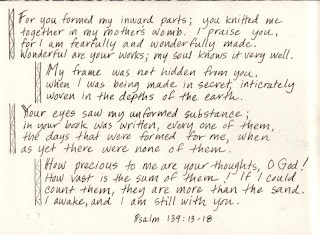 For you formed my inward parts; you knitted me
together in my mother's womb. I praise you,
for I am fearfully and wonderfully made.
Wonderful are your works; my soul knows it very well.
My frame was not hidden from you,
when I was being made in secret, intricately
woven in the depths of the earth.
Your eyes saw my unformed substance;
in your book was written, every one of them,
the days that were formed for me, when
as yet there were none of them.
How precious to me are your thoughts, O God!
How vast is the sum of them! If I could
count them, they are more than the sand.
I awake, and I am still with you.
Psalm 139:13-18